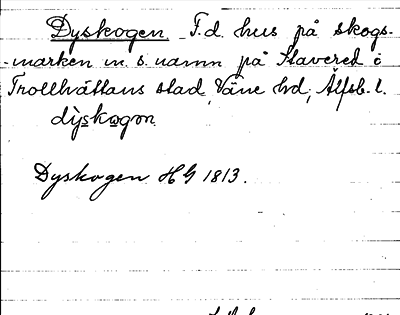 Dyskogen F.d. hus på skogs-
-marken m. s. namn på Stavered i
Trollhättans stad, Väne hd, Älfsb. l.
dẏskogon
Dyskogen HG 1813.